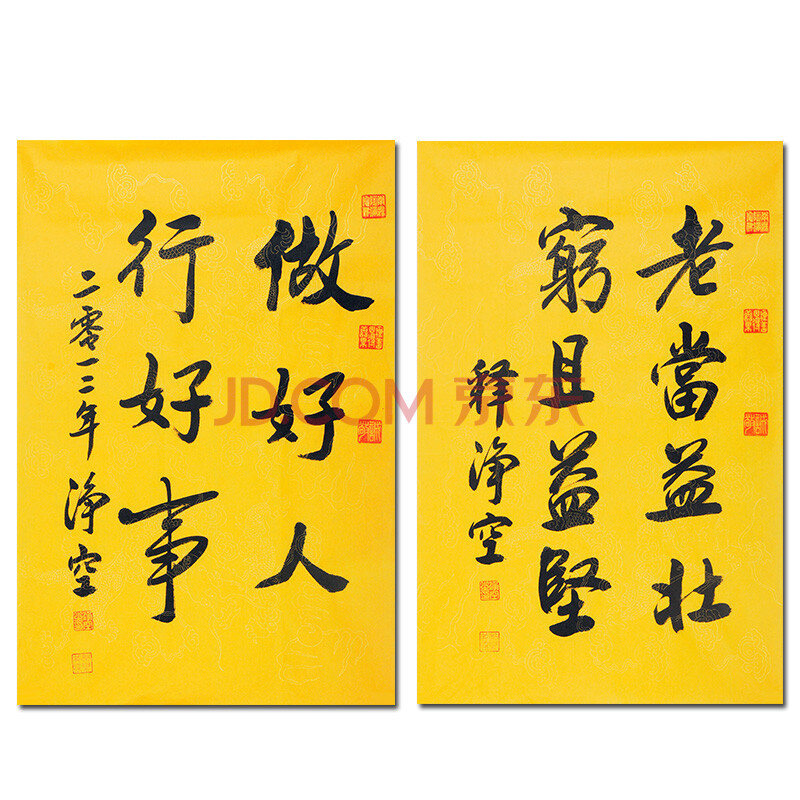 做好人
行好事
二零一二年 淨空
老當益壯
窮且益堅
釋淨空
JD.COM 京东